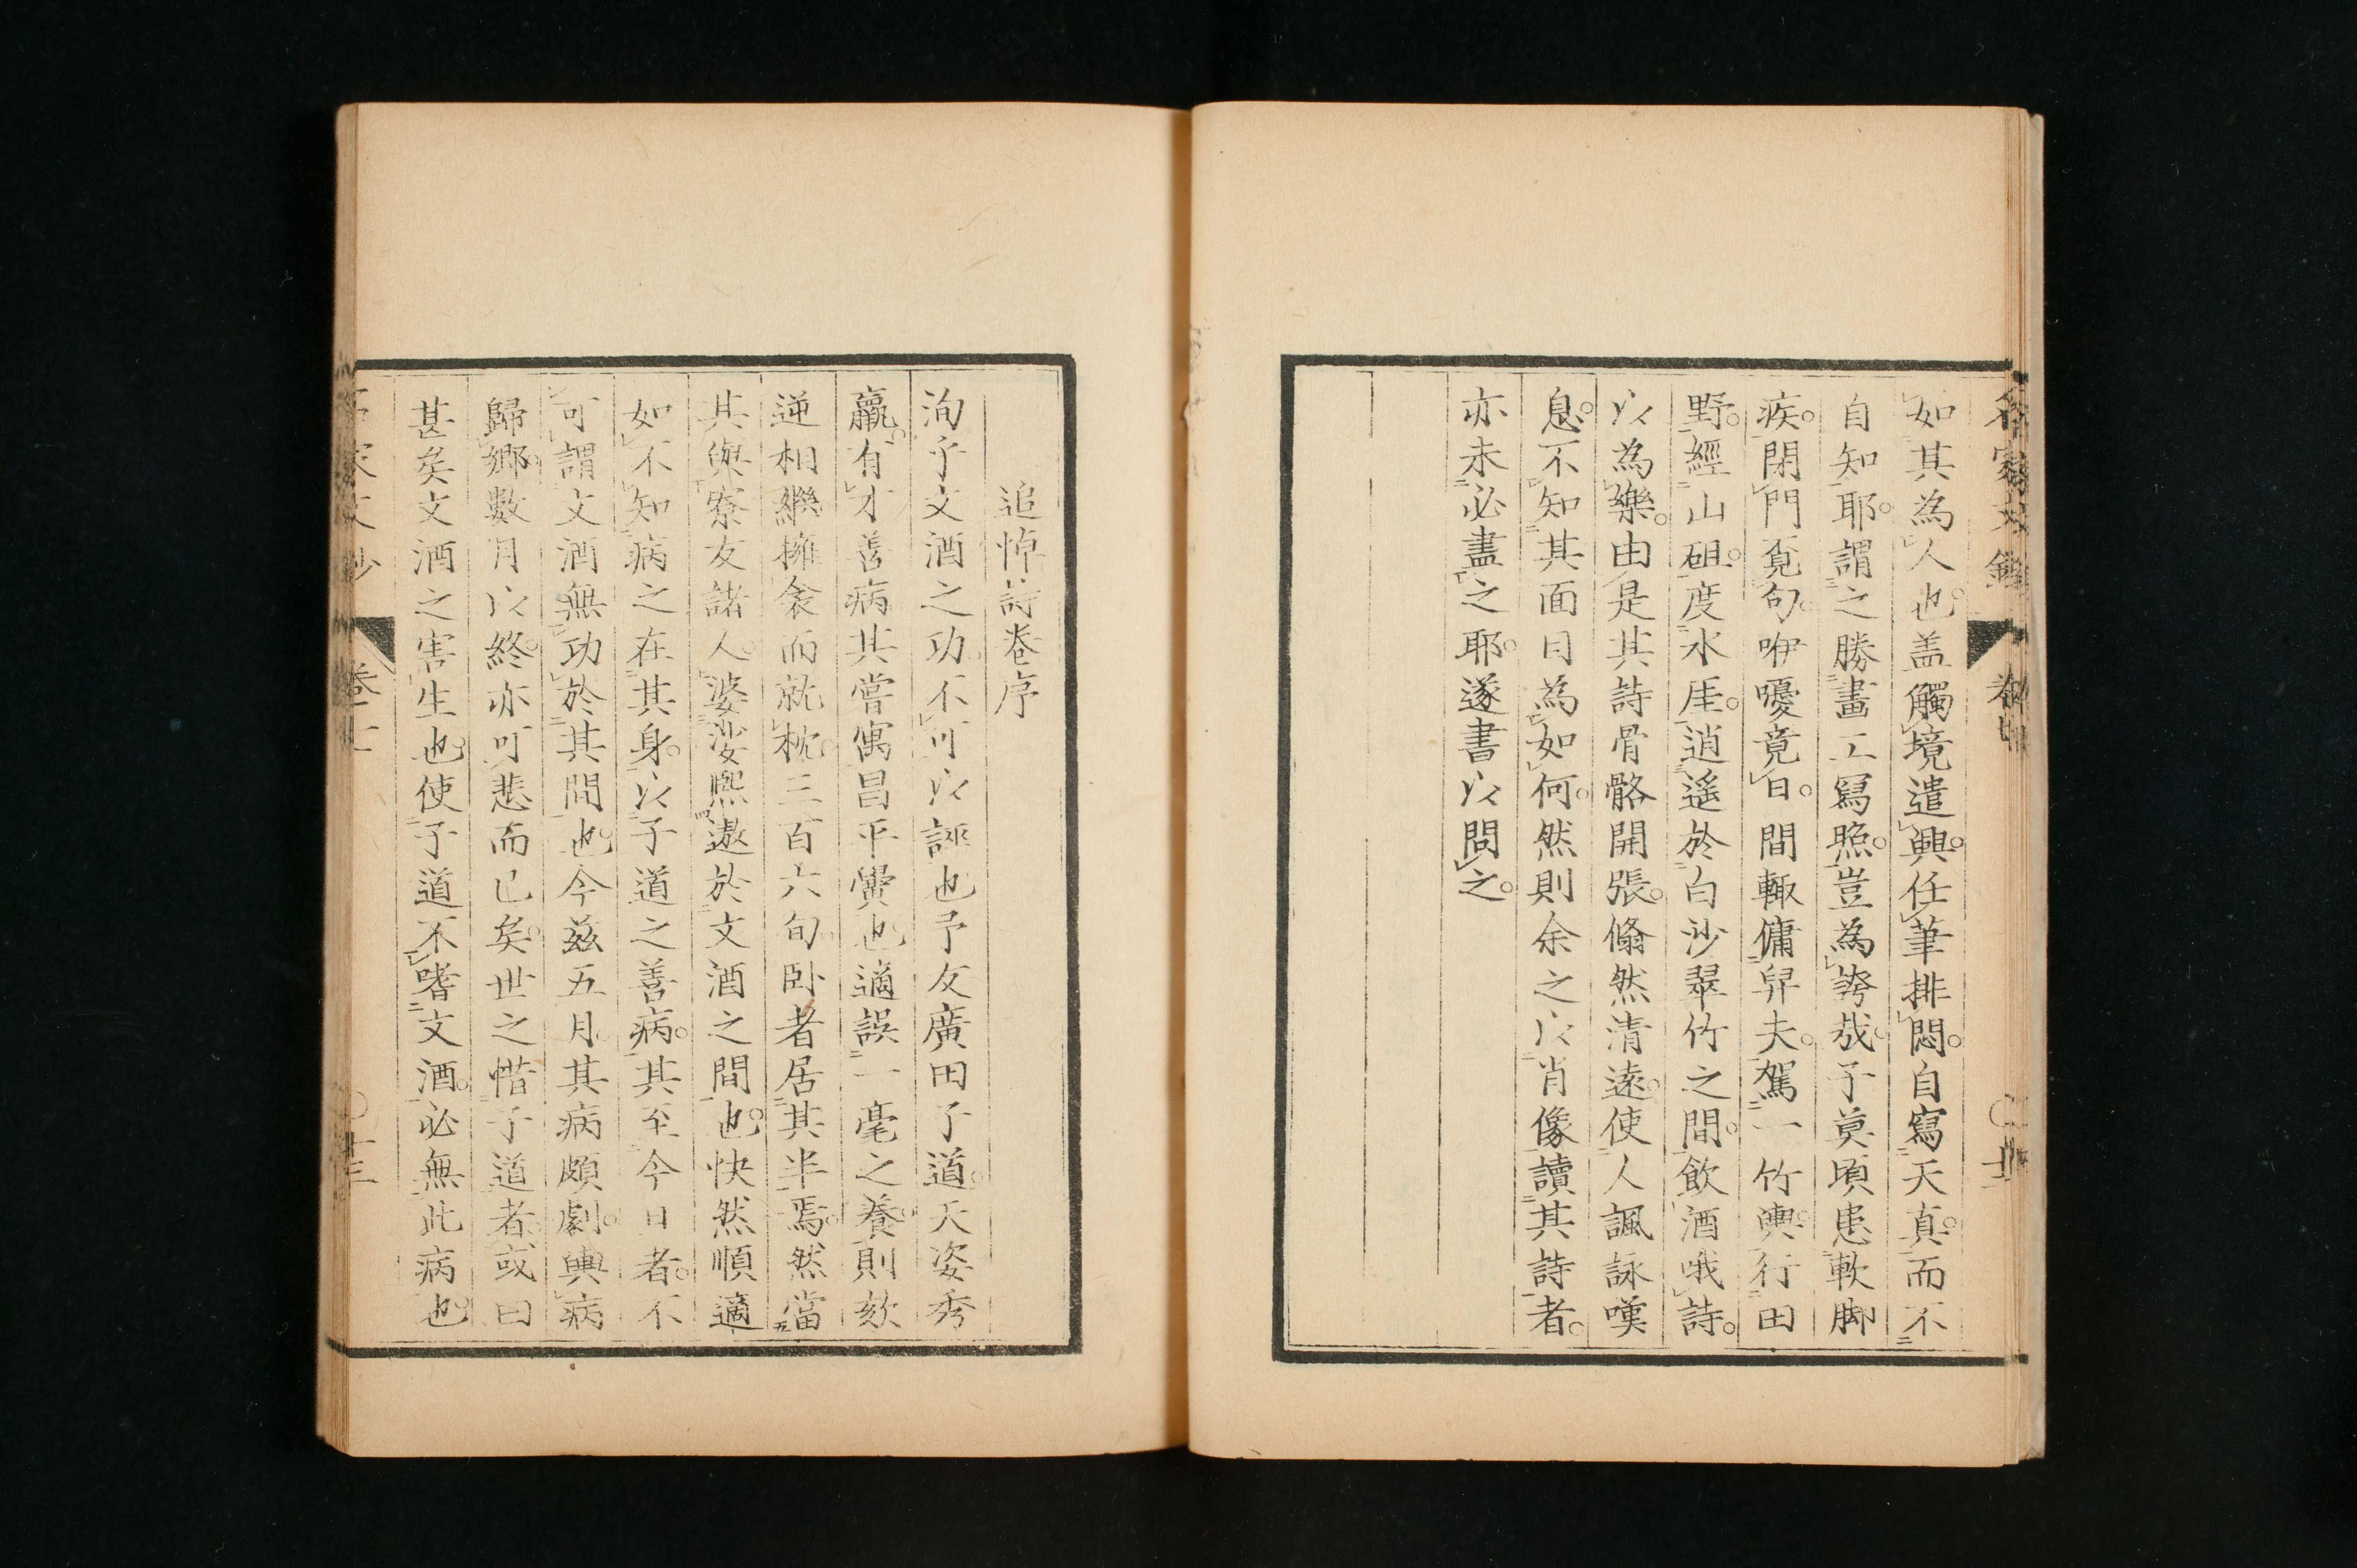 如其為人也盖觸境遣興任筆排悶自寫天真而不
自知耶謂之勝畫工寫照豈為誇哉子莫頃患軟脚
疾閉門覓句咿嚘竟日間輙傭舁夫駕一竹輿行田
野經山砠度水厓逍遙於白沙翠竹之間飲酒哦詩
以為樂由是其詩骨骼開張翛然清遠使人諷詠嘆
息不知其面目為如何然則余之以肖像讀其詩者
亦未必盡之耶遂書以問之
追悼詩卷序
洵乎文酒之功不可以誣也予友廣田子道天姿秀
羸有才善病其嘗寓昌平黌也適誤一毫之養則欬
逆相繼擁衾而就枕三百六旬卧者居其半焉然當
其與寮友諸人婆沙熙遨於文酒之間也快然順適
如不知病之在其身以子道之善病其至今日者不
可謂文酒無功於其間也今茲五月其病頗劇輿病
歸鄉數月以終亦可悲而已矣世之惜子道者或曰
甚矣文酒之害生也使子道不嗜文酒必無此病也
卷十